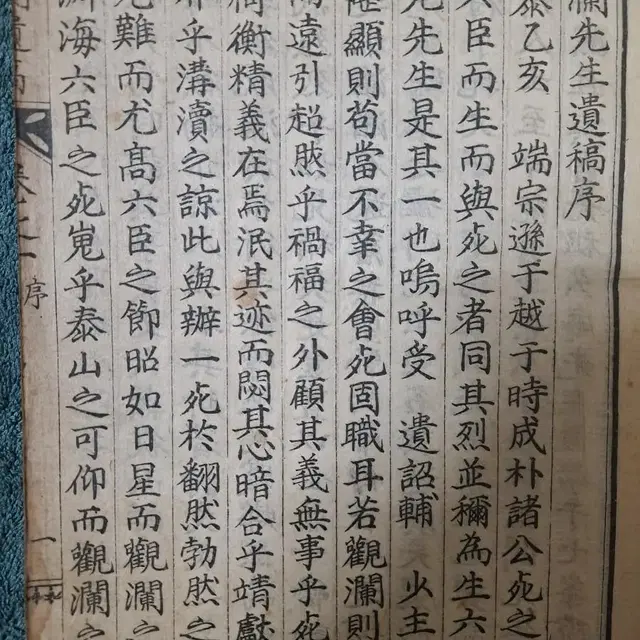 瀾先生遺稿序
泰乙亥 端宗遜于越于時成朴諸公死之
臣而生而與死之者同其烈並稱為生六
先生是其一也嗚呼受 遺詔輔 少主
顯則苟當不幸之會死固職耳若觀瀾則
遠引超然乎禍福之外顧其義無事乎死
衡精義在焉泯其迹而閟其心暗合乎靖獻
乎溝瀆之諒此與辦一死於翻然勃然之
難而尤高六臣之節昭如日星而觀瀾之
海六臣之死嵬乎泰山之可仰而觀瀾之
卷之一 序 一